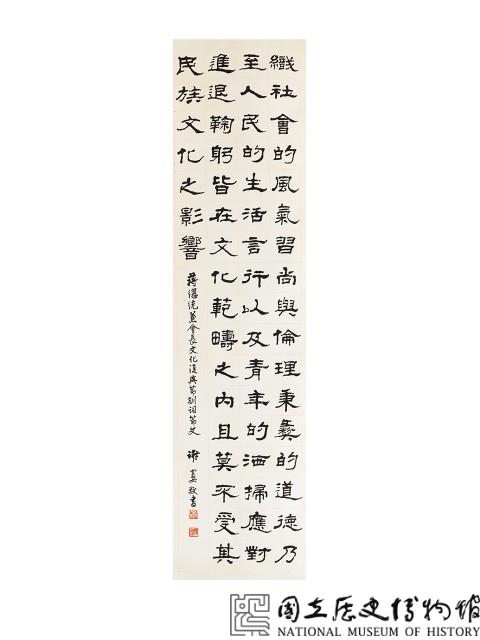 織社會的風氣習尚與倫理秉彝的道德乃
至人民的生活言行以及青年的洒掃應對
進退鞠躬皆在文化範疇之内且莫不受其
民族文化之影響
蔣總統兼會長文化復興節訓詞節文
敬書
國立歷史博物館
NATIONAL MUSEUM OF HISTORY